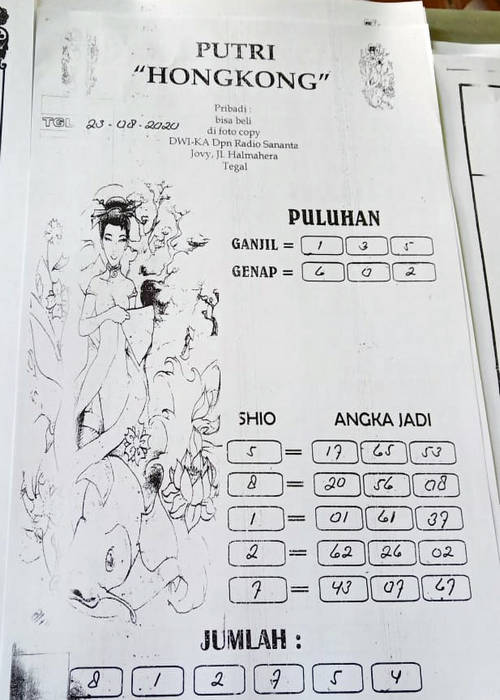 PUTRI
“HONGKONG”
Pribadi :
bisa beli
di foto copy
DWI-KA Dpn Radio Sananta
Jovy, Jl. Halmahera
Tegal
TGL 23-08-2020
PULUHAN
GANJIL = 1 3 5
GENAP = 6 0 2
SHIO ANGKA JADI
5 = 17 65 53
8 = 20 56 08
1 = 01 61 37
2 = 62 26 02
7 = 43 07 67
JUMLAH :
8 1 2 7 5 4